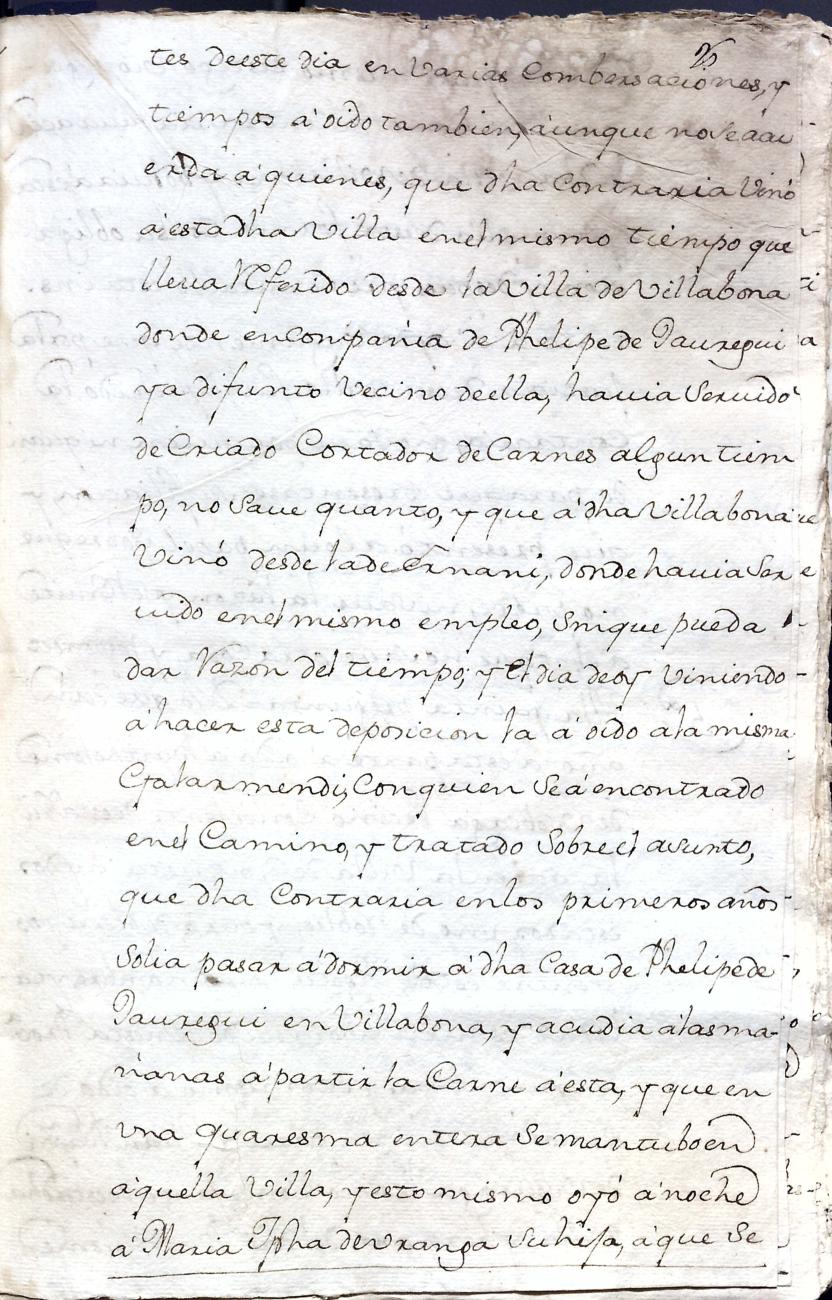 tes deeste dia en Varias Combersaciones, y
tiempos a' oido tambien, aunque no se acu
erda a' quienes, que dha Contraria Vino
a' esta dha Villa en el mismo tiempo que
lleua Referido desde la Villa de Villabona
donde en Compañia de Phelipe de Jauregui
ya difunto Vecino de ella, hauia Seruido
de Criado Cortador de Carnes algun tiem
po, no Saue quanto, y que a' dha Villabona
Vino desde la de Ernani, donde hauia Ser
uido en el mismo empleo, Sin que pueda
dar Razon del tiempo; y El dia de oy Viniendo
a' hacer esta deposicion la a' oido a la misma
Galarmendi, Con quien Se a' encontrado
en el Camino, y tratado Sobre el asunto,
que dha Contraria en los primeros años
Solia pasar a' dormir a' dha Casa de Phelipe de
Jauregui en Villabona, y acudia a las ma-
ñanas a' partir la Carne a' esta, y que en
vna quaresma entera Se mantubo en
a'quella Villa, y esto mismo oyó a' noche
a' Maria Jpha de Vranga Su hija, a' que Se